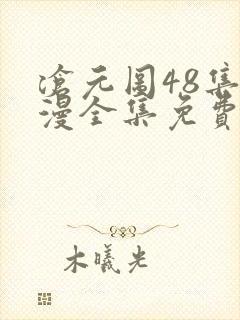 沧元图48集
漫全集免费
木曦光